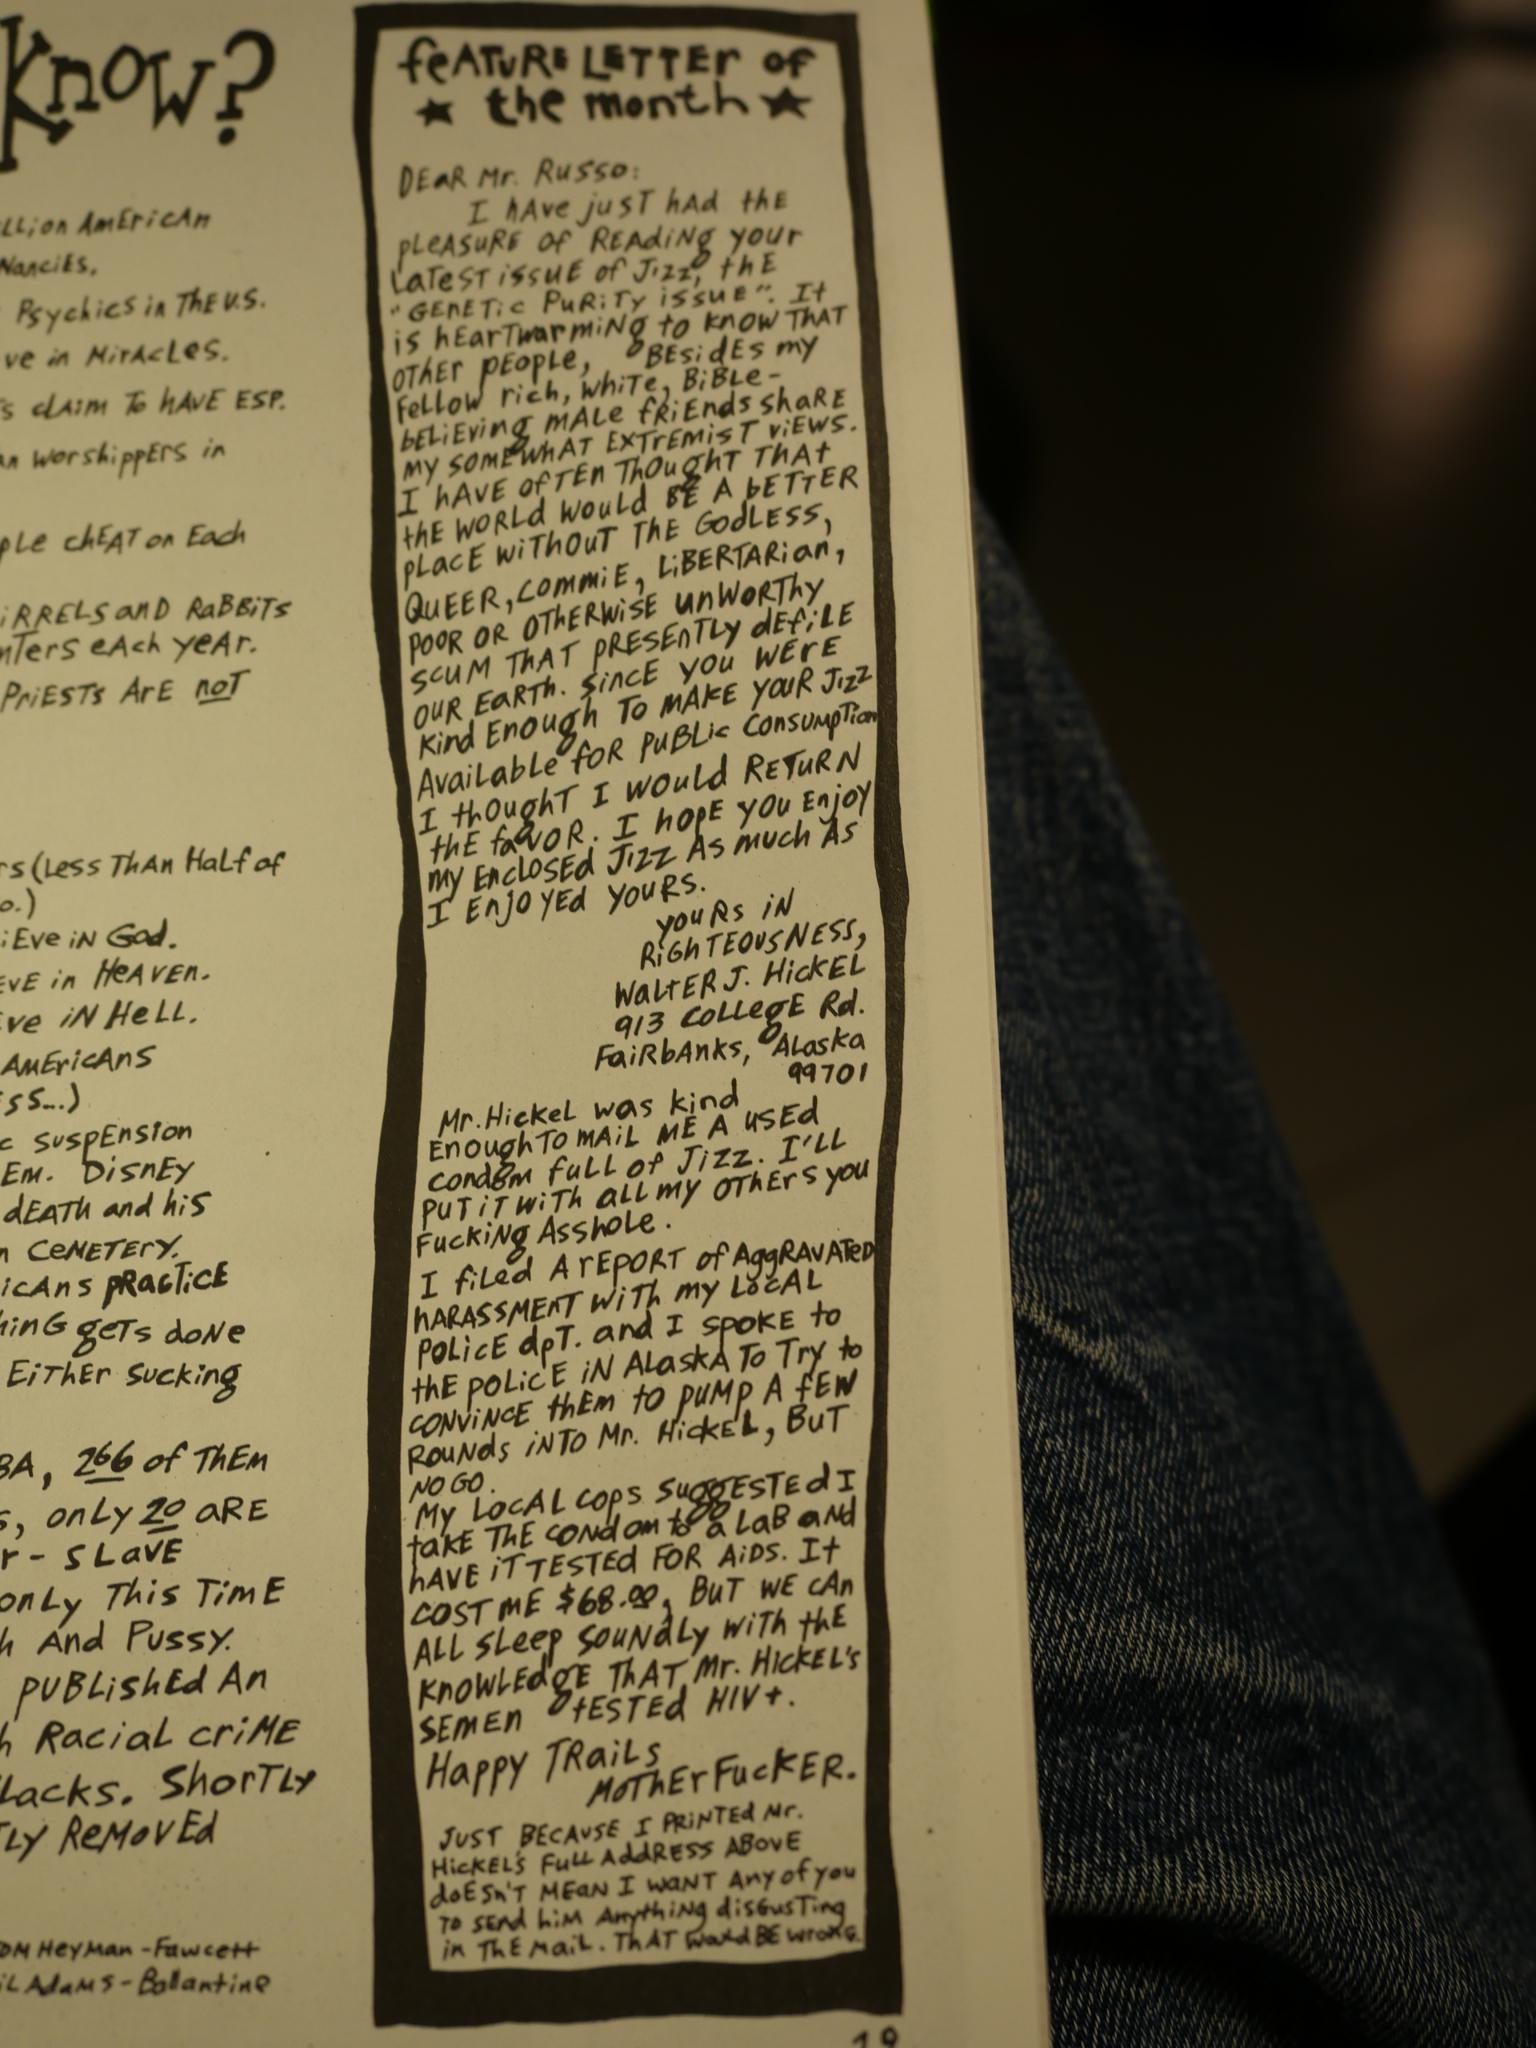 Know?
LLion AMERiCAN
NANCiES.
Psychics in THE U.S.
ve in MiRACLES.
's cLAiM To HAVE ESP.
an worshippERS in
ple chEAT on EACh
iRRELS and RaBBiTS
nTers eACh yEAr.
PRiESTs ARE noT
rs (LESS THAN HALf of
o.)
iEVE iN God.
EVE in HEAVEN.
EVE iN HELL.
AMERicANS
ss...)
c suspENSion
EM. DiSNEY
dEATH and hiS
n CEMETERY.
icANS pRACTiCE
hiNG gETS doNE
EiTHER Sucking
BA, 266 of THEM
s, onLy 20 ARE
r - SLAVE
onLy This TiME
h And Pussy.
puBLishEd An
h RaciaL criME
Lacks. ShorTLy
TLy REMoVEd
OM HEyMAN - FAWcETT
iL AdAMS - BaLLanTinE
feATURE LETTER of
★ the month ★
DEAR Mr. Russo:
I hAve just had the
pLEASURE of REAding your
LATEST issuE of Jizz, thE
"GENETic PuRiTy issuE". It
is hEARTwarmiNg to know THAT
OTHER pEOpLE, BESidES my
fELLow rich, whiTE, BiBLE-
BELiEving mALE fRiENds shaRE
my somEwhAT EXTREMisT viEWS.
I hAVE ofTEN ThOughT THAT
thE woRLd wouLd BE A bETTER
pLACE wiThOUT THE GodLESS,
QUEER, COMMiE, LiBERTARian,
pooR OR OTHERwiSE unwoRThy
scum THAT pRESEnTLy dEfiLE
our EaRTh. SincE you WERE
Kind Enough To mAKE youR Jizz
AvaiLabLE foR puBLic consumpTion
I thoughT I wouLd RETURN
thE faVOR. I hopE you Enjoy
my EncLOSEd Jizz As much As
I EnjoyEd youRs.
youRs iN
RiGhTEOUSNESS,
WaLtER J. HickEL
913 CoLLEgE Rd.
FaiRbAnks, ALaska
99701
Mr. HickEL was kind
Enough To MAiL ME A usEd
condom fuLL of Jizz. I'LL
puT iT wiTh aLL my OTHERS you
fucking AsshoLE.
I fiLEd A REPORT of AggRAVATED
hARASSMENT wiTh my LocAL
poLicE dpT. and I spoKE to
thE poLicE iN ALaskA To TRy to
coNViNCE thEm to puMp A fEW
RouNds iNTO Mr. HickEL, BuT
NO GO.
My LocAL cops suggESTEd I
tAKE THE condom to a LaB aNd
hAVE iT TESTED FOR AiDS. It
cosT ME $68.00, BuT WE cAn
ALL SLEEp SouNdLy wiTh thE
KNowLEdgE THAT Mr. HickEL's
SEMEN tESTEd HIV+.
Happy TRaiLs
MoTHERFucKER.
JuST BECAUSE I PRiNTEd Mr.
HickEL's fuLL AddRESS ABOVE
doESn'T MEAN I WANT Any of you
To sENd hiM AnyThiNg disGusTing
in ThE MaiL. THAT wouLd BE wroNg.
19